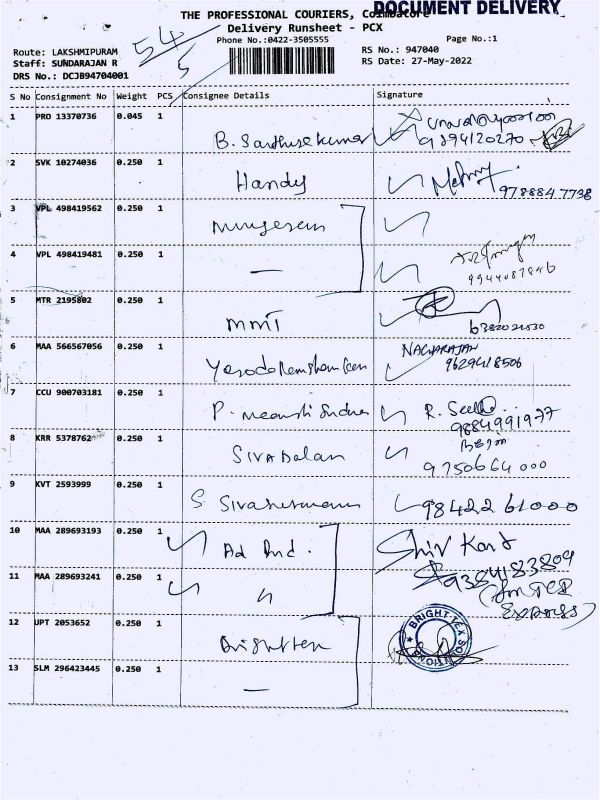 DOCUMENT DELIVERY
THE PROFESSIONAL COURIERS, Coimbatore
Delivery Runsheet - PCX
54
5
Phone No.:0422-3505555
Page No.:1
Route: LAKSHMIPURAM
RS No.: 947040
Staff: SUNDARAJAN R
RS Date: 27-May-2022
DRS No.: DCJB94704001
S No Consignment No Weight PCS Consignee Details Signature
1 PRO 13370736 0.045 1
9894120270
2 SVK 10274036 0.250 1 Handy
978884 7738
3 VPL 498419562 0.250 1
4 VPL 498419481 0.250 1 —
5 MTR 2195802 0.250 1 MMT
6 MAA 566567056 0.250 1 NAGARAJAN
9629418506
7 CCU 900703181 0.250 1
9884991977
8 KRR 5378762 0.250 1 SIVABalan
9750664000
9 KVT 2593999 0.250 1 98422 61000
10 MAA 289693193 0.250 1 Ad Ind.
9384183809
11 MAA 289693241 0.250 1 "
EXPRESS)
12 UPT 2053652 0.250 1
BRIGHT TEX SOLUTIONS
13 SLM 296423445 0.250 1 —